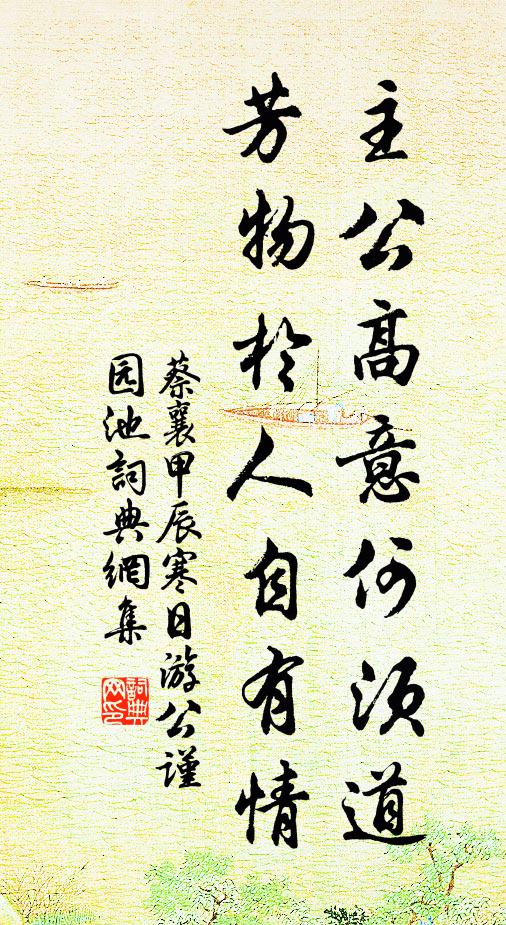 主公高意何须道
芳物於人自有情
蔡襄甲辰寒日游公谨
园池詞典網集
詞典网印